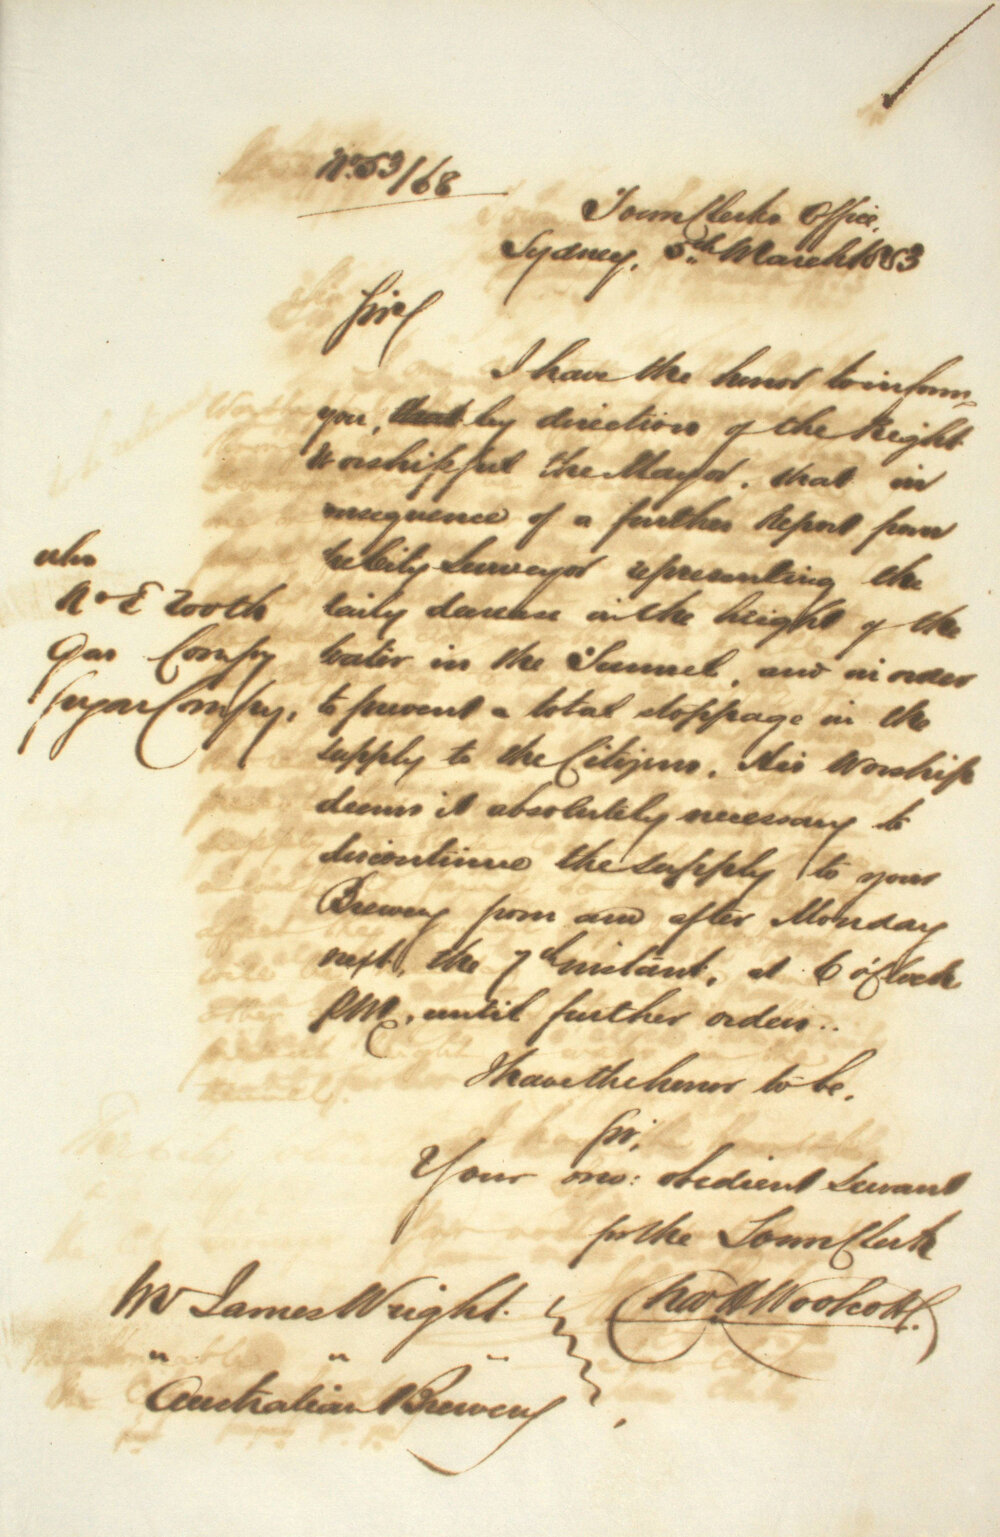 No. 53/68
Town Clerks Office,
Sydney, 5th March 1853
Sir,
I have the honor to inform
you, that by direction of the Right
Worshipful the Mayor, that in
consequence of a further Report from
the City Surveyor representing the
daily decrease in the height of the
water in the Tunnel, and in order
to prevent a total stoppage in the
supply to the Citizens, His Worship
deems it absolutely necessary to
discontinue the supply to your
Brewery from and after Monday
next, the 7th instant, at 6 o'Clock
P.M., until further orders..
I have the honor to be,
Sir,
Your mo: obedient Servant
for the Town Clerk
Chas H Woolcott
Mr James Wright
" " "
Australian Brewery
also
R & E Tooth
Gas Compy
Sugar Compy,